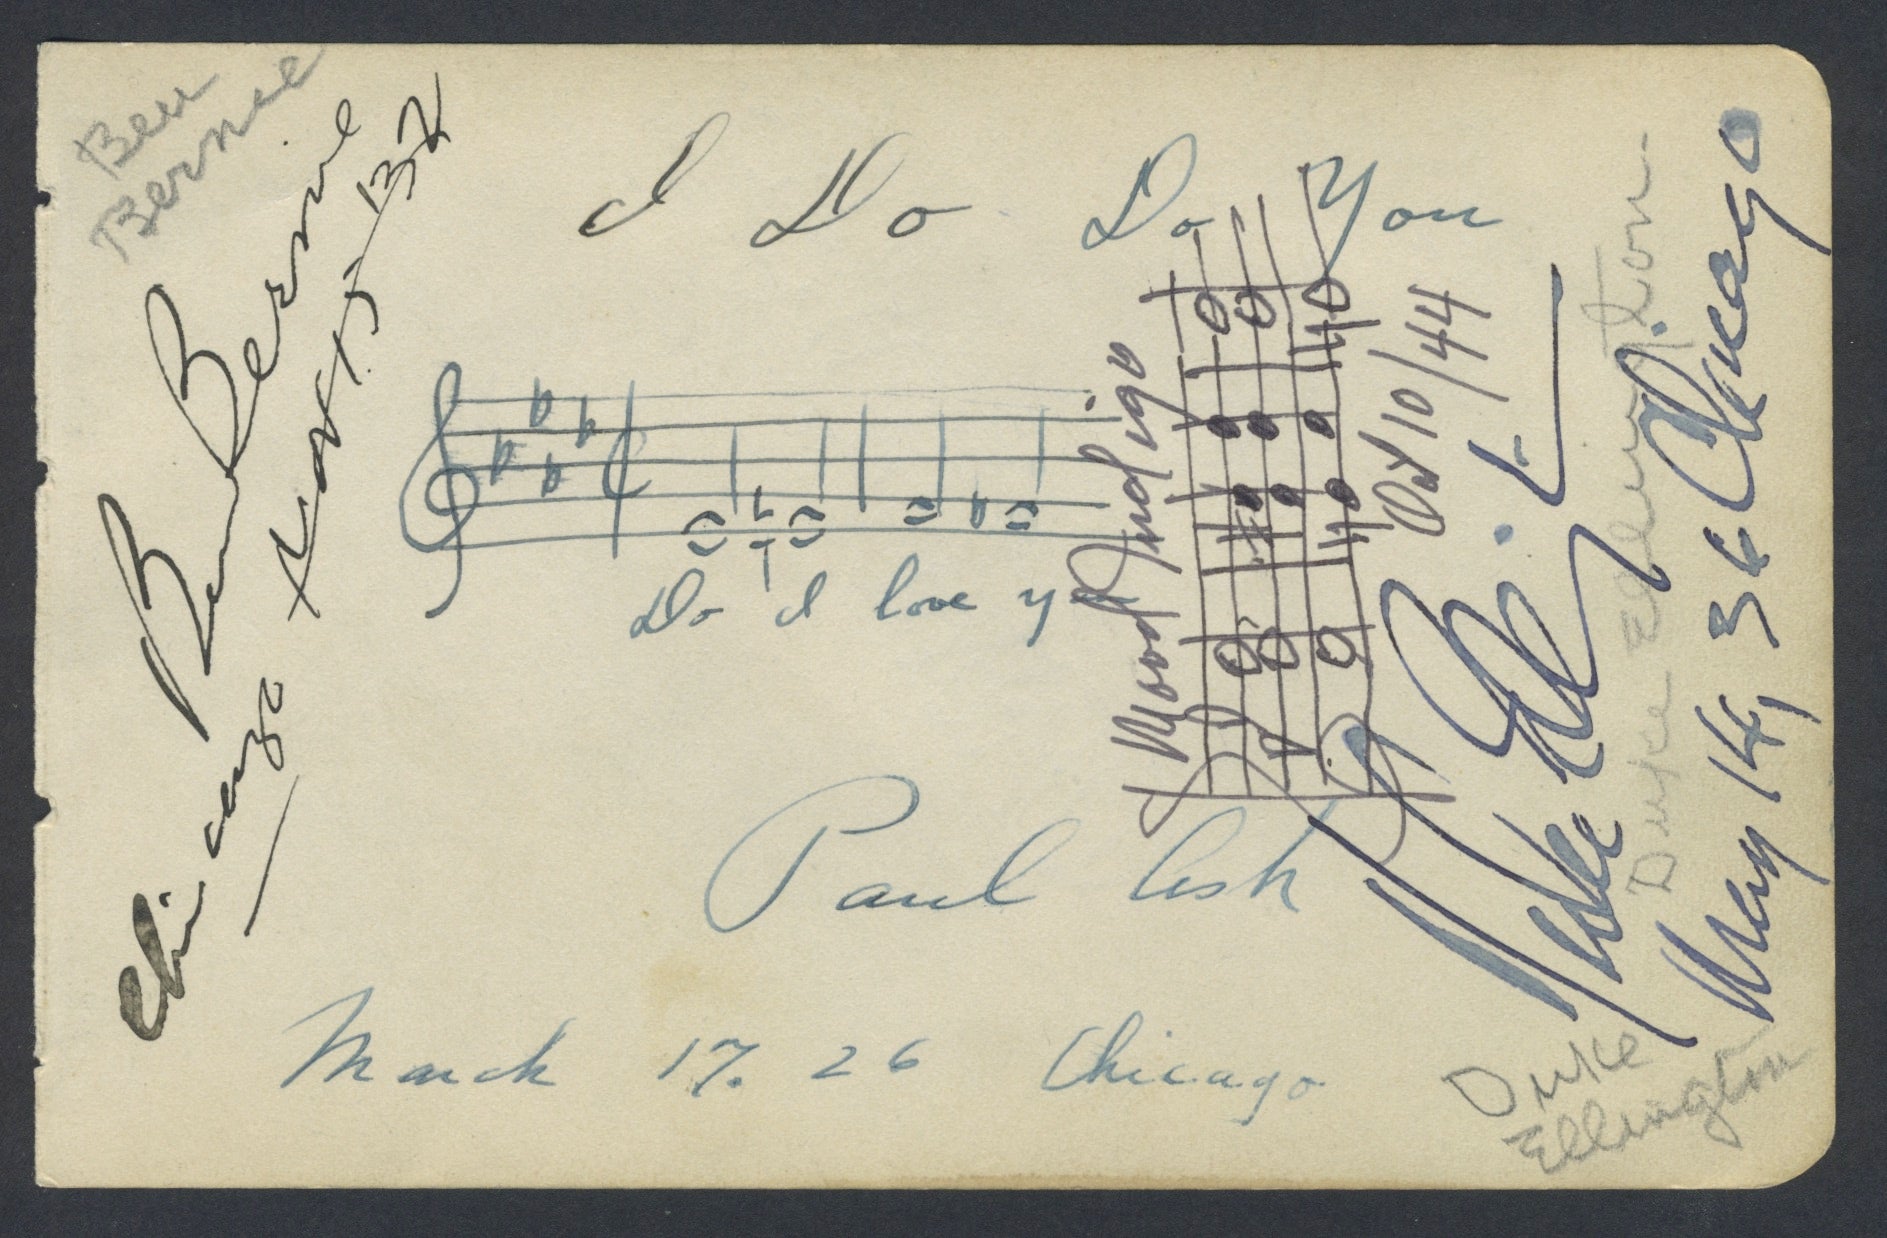 Ben
Bernie
Ben Bernie
Chicago
I Do Do You
Do I love
Paul Ash
March 17. 26 Chicago
Mood Indigo
Oct 10/44
Duke Ellington
Duke Ellington
May 14, 36 Chicago
Duke
Ellington